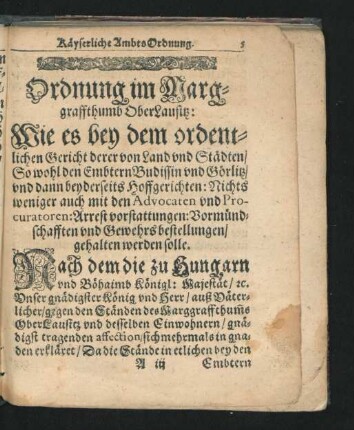 Käyserliche Ambts Ordnung. 5
Ordnung im Marg-
graffthumb OberLausitz:
Wie es bey dem ordent-
lichen Gericht derer von Land vnd Städten/
So wohl den Embtern Budissin vnd Görlitz/
vnd dann beyderseits Hoffgerichten: Nichts
weniger auch mit den Advocaten vnd Pro-
curatoren: Arrest vorstattungen: Vormünd-
schafften vnd Gewehrs bestellungen/
gehalten werden solle.
Nach dem die zu Hungarn
vnd Böhaimb Königl: Majestät/ ꝛc.
Vnser gnädigster König vnd Herr/ auß Väter-
licher/ gegen den Ständen des Marggraffthums
OberLausitz vnd desselben Einwohnern/ gnä-
digst tragenden affection/ sich mehrmals in gna-
den erkläret/ Da die Stände in etlichen bey den
A iij Embtern